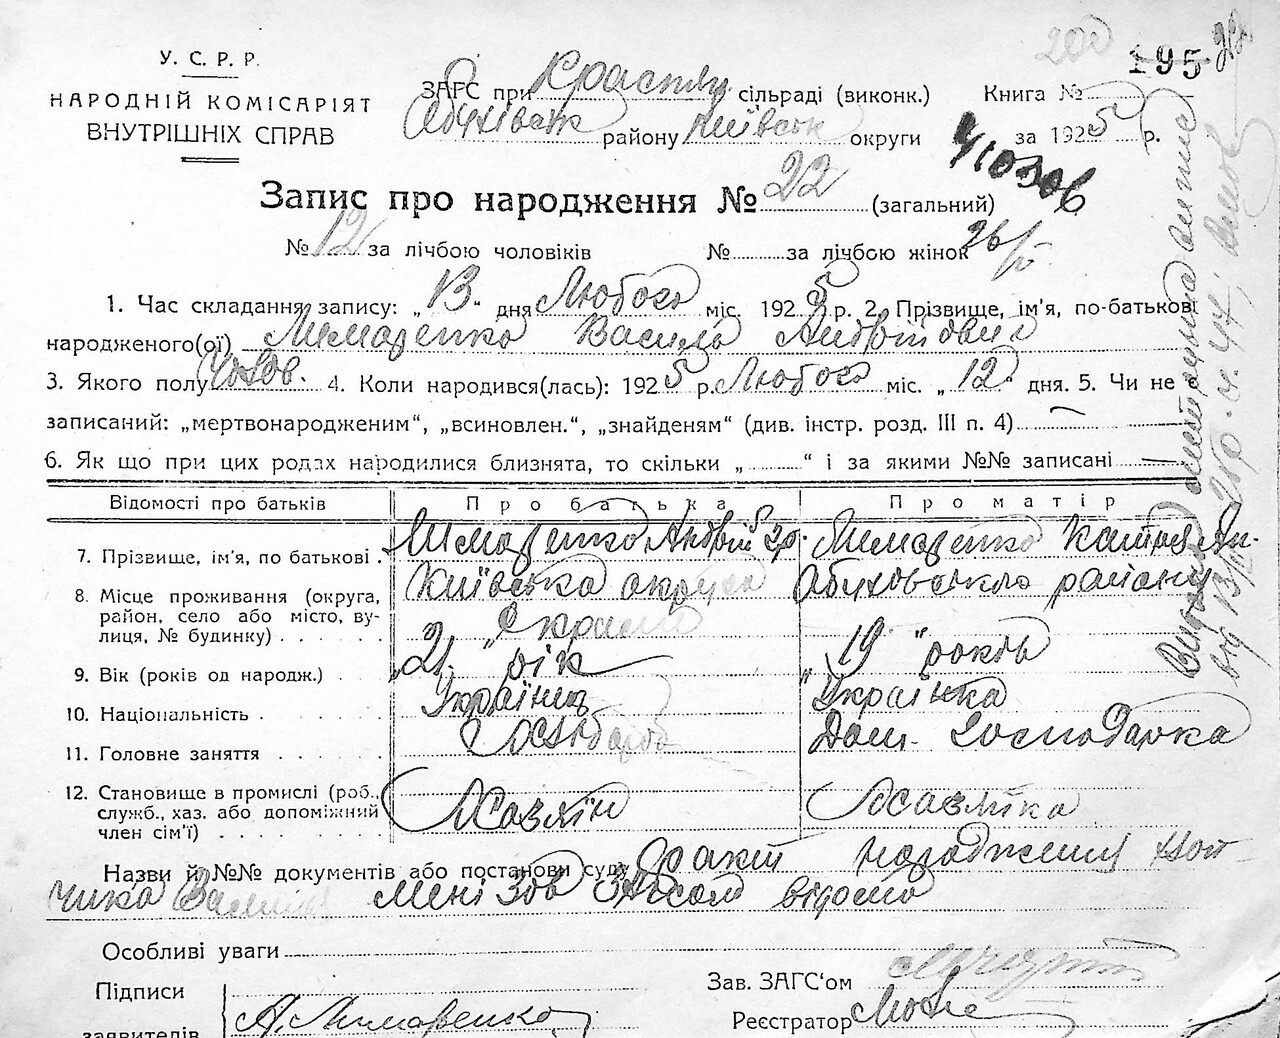 У. С. Р. Р.
НАРОДНІЙ КОМІСАРІЯТ
ВНУТРІШНІХ СПРАВ
200
195
ЗАГС при сільраді (виконк.) Книга №
району Київськ округи за 1925 р.
Запис про народження № 22 (загальний)
№ 12 за лічбою чоловіків № за лічбою жінок
1. Час складання запису: „13" дня Лютого міс. 1925 р. 2. Прізвище, ім'я, по-батькові
народженого(ої) Лимаренко Василь Андрійович
3. Якого полу чолов. 4. Коли народився(лась): 1925 р. Лютого міс. „12" дня. 5. Чи не
записаний: „мертвонародженим“, „всиновлен.“, „знайденям“ (див. інстр. розд. III п. 4)
6. Як що при цих родах народилися близнята, то скільки „ “ і за якими №№ записані
Відомості про батьків Про батька Про матір
7. Прізвище, ім'я, по батькові Лимаренко Андрій Лимаренко
8. Місце проживання (округа, Київська округа Обуховського району
район, село або місто, ву-
лиця, № будинку)
9. Вік (років од народж.) „21" рік „19" років
10. Національність Українець Українка
11. Головне заняття Дом. господарка
12. Становище в промислі (роб.,
служб., хаз. або допоміжний Хазяїн Хазяйка
член сім'ї)
Назви й №№ документів або постанови суду Факт народження хлоп-
чика мені Зав Загсом відомо
Особливі уваги
Підписи Зав. ЗАГС‘ом
заявителів А. Лимаренко Реєстратор